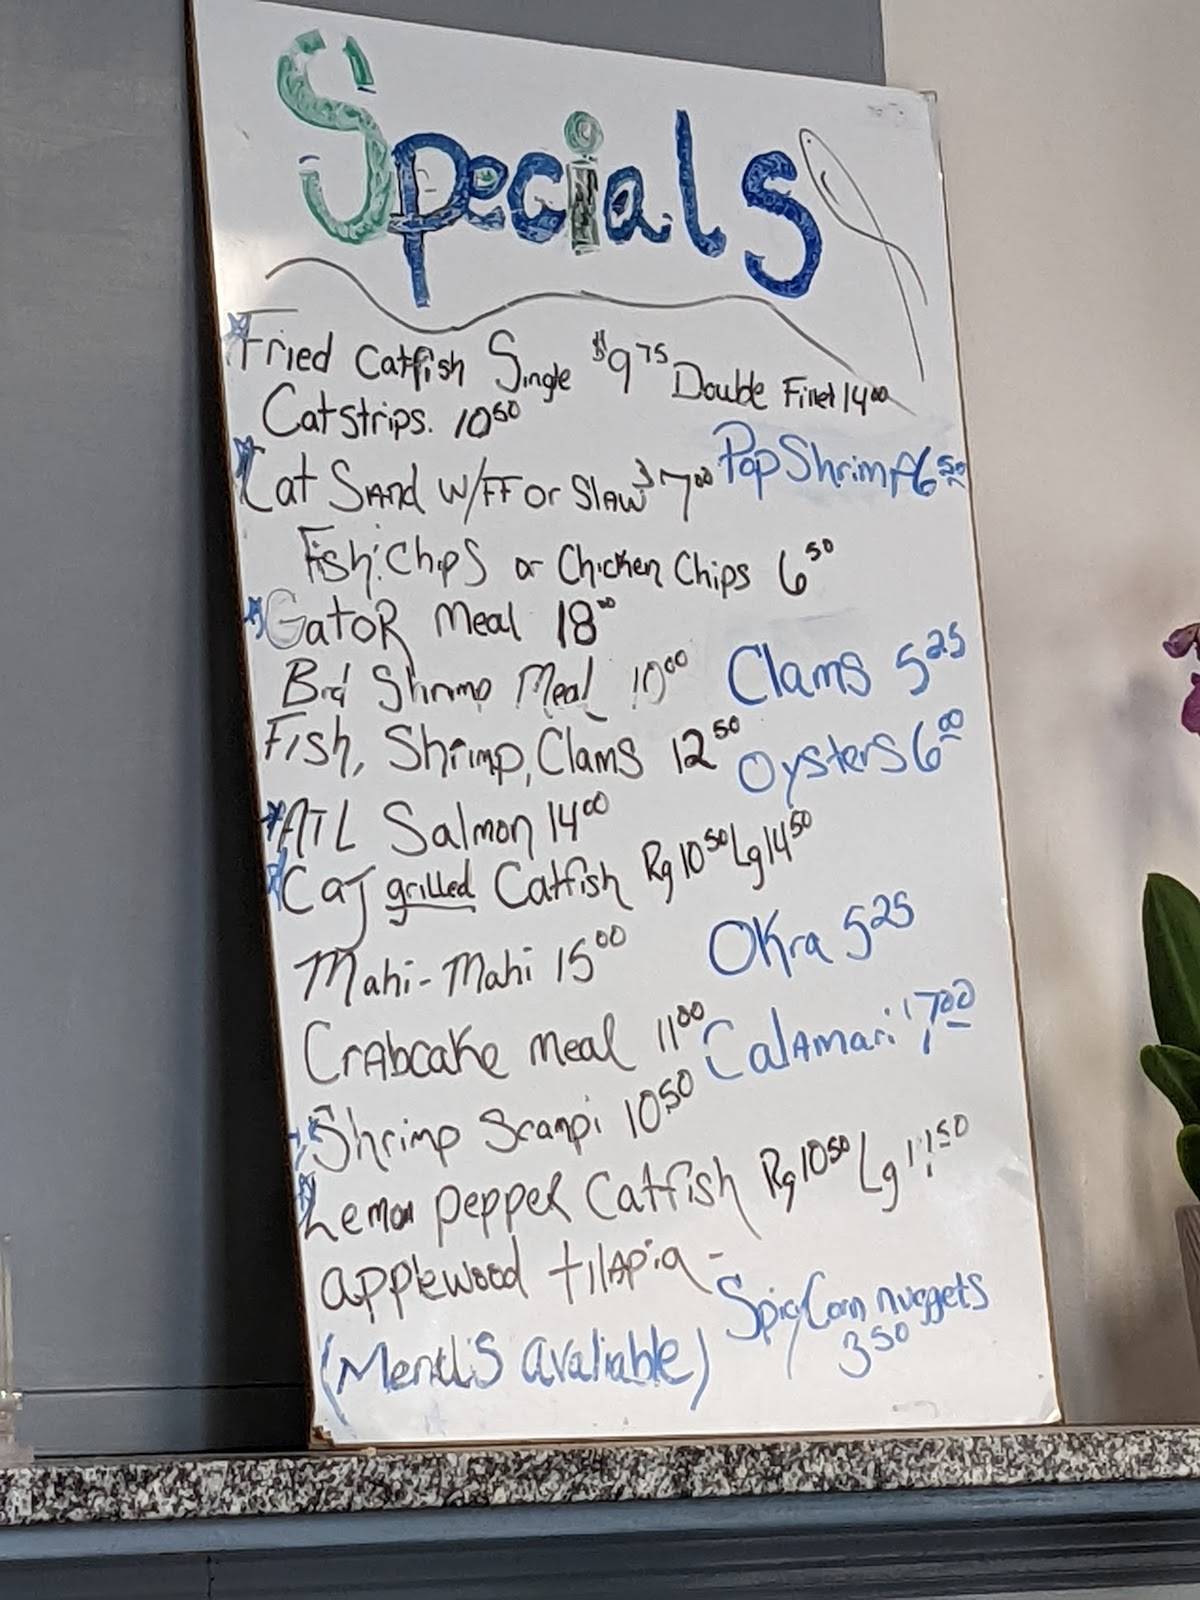 Specials
Fried Catfish Single $9.75 Double Fillet 14.00
Catstrips. 10.50
Cat Sand w/FF or Slaw $7.00 Pop Shrimp 6.50
Fish: Chips or Chicken Chips 6.50
Gator Meal 18.00
Brd Shrimp Meal 10.00 Clams 5.25
Fish, Shrimp, Clams 12.50 Oysters 6.00
ATL Salmon 14.00
Caj grilled Catfish Rg 10.50 Lg 14.50
Mahi-Mahi 15.00 Okra 5.25
Crabcake meal 11.00 Calamari 7.00
Shrimp Scampi 10.50
Lemon pepper Catfish Rg 10.50 Lg
applewood tilapia -
Spicy Corn nuggets
3.50
(Menu's avaliable)